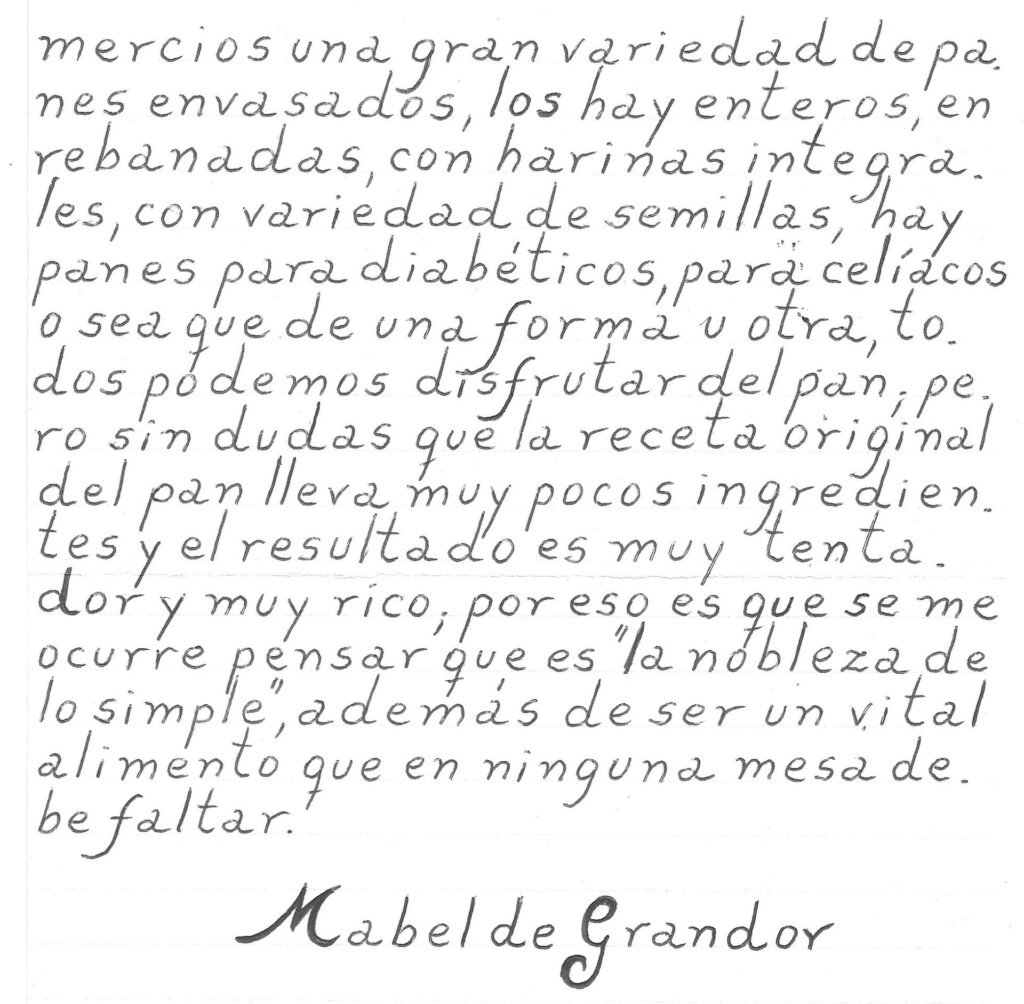 mercios una gran variedad de pa.
nes envasados, los hay enteros, en
rebanadas, con harinas integra.
les, con variedad de semillas, hay
panes para diabéticos, para celíacos
o sea que de una forma u otra, to.
dos podemos disfrutar del pan; pe.
ro sin dudas que la receta original
del pan lleva muy pocos ingredien.
tes y el resultado es muy tenta.
dor y muy rico; por eso es que se me
ocurre pensar que es "la nobleza de
lo simple", además de ser un vital
alimento que en ninguna mesa de.
be faltar.
Mabel de Grandor